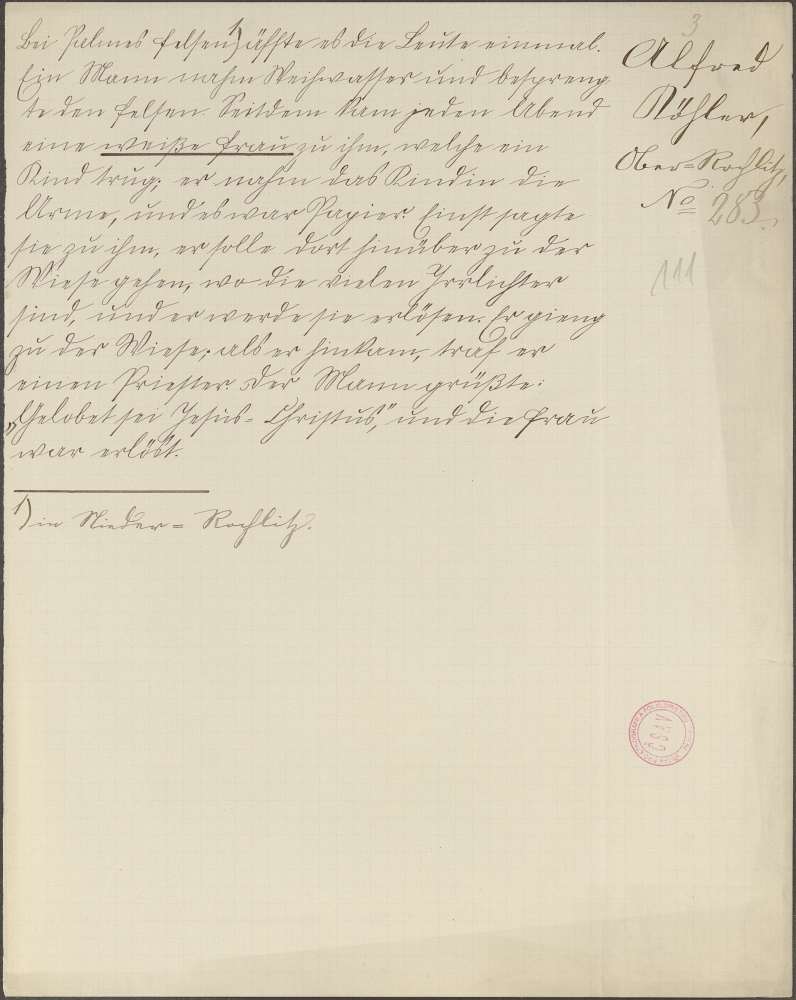 Bei Palmes Felsen 1) äffte es die Leute einmal.
Ein Mann nahm Weihwasser und bespreng
te den Felsen. Seitdem kam jeden Abend
eine weiße Frau zu ihm, welche ein
Kind trug; er nahm das Kind in die
Arme, und es war Papier. Einst sagte
sie zu ihm, er solle dort hinüber zu der
Wiese gehen, wo die vielen Irrlichter
sind, und er werde sie erlösen. Er gieng
zu der Wiese; als er hinkam, traf er
einen Priester. Der Mann grüßte:
„Gelobet sei Jesus-Christus," und die Frau
war erlöst.
1) in Nieder-Rochlitz.
3
Alfred
Köhler,
Ober-Rochlitz,
No 283.
111